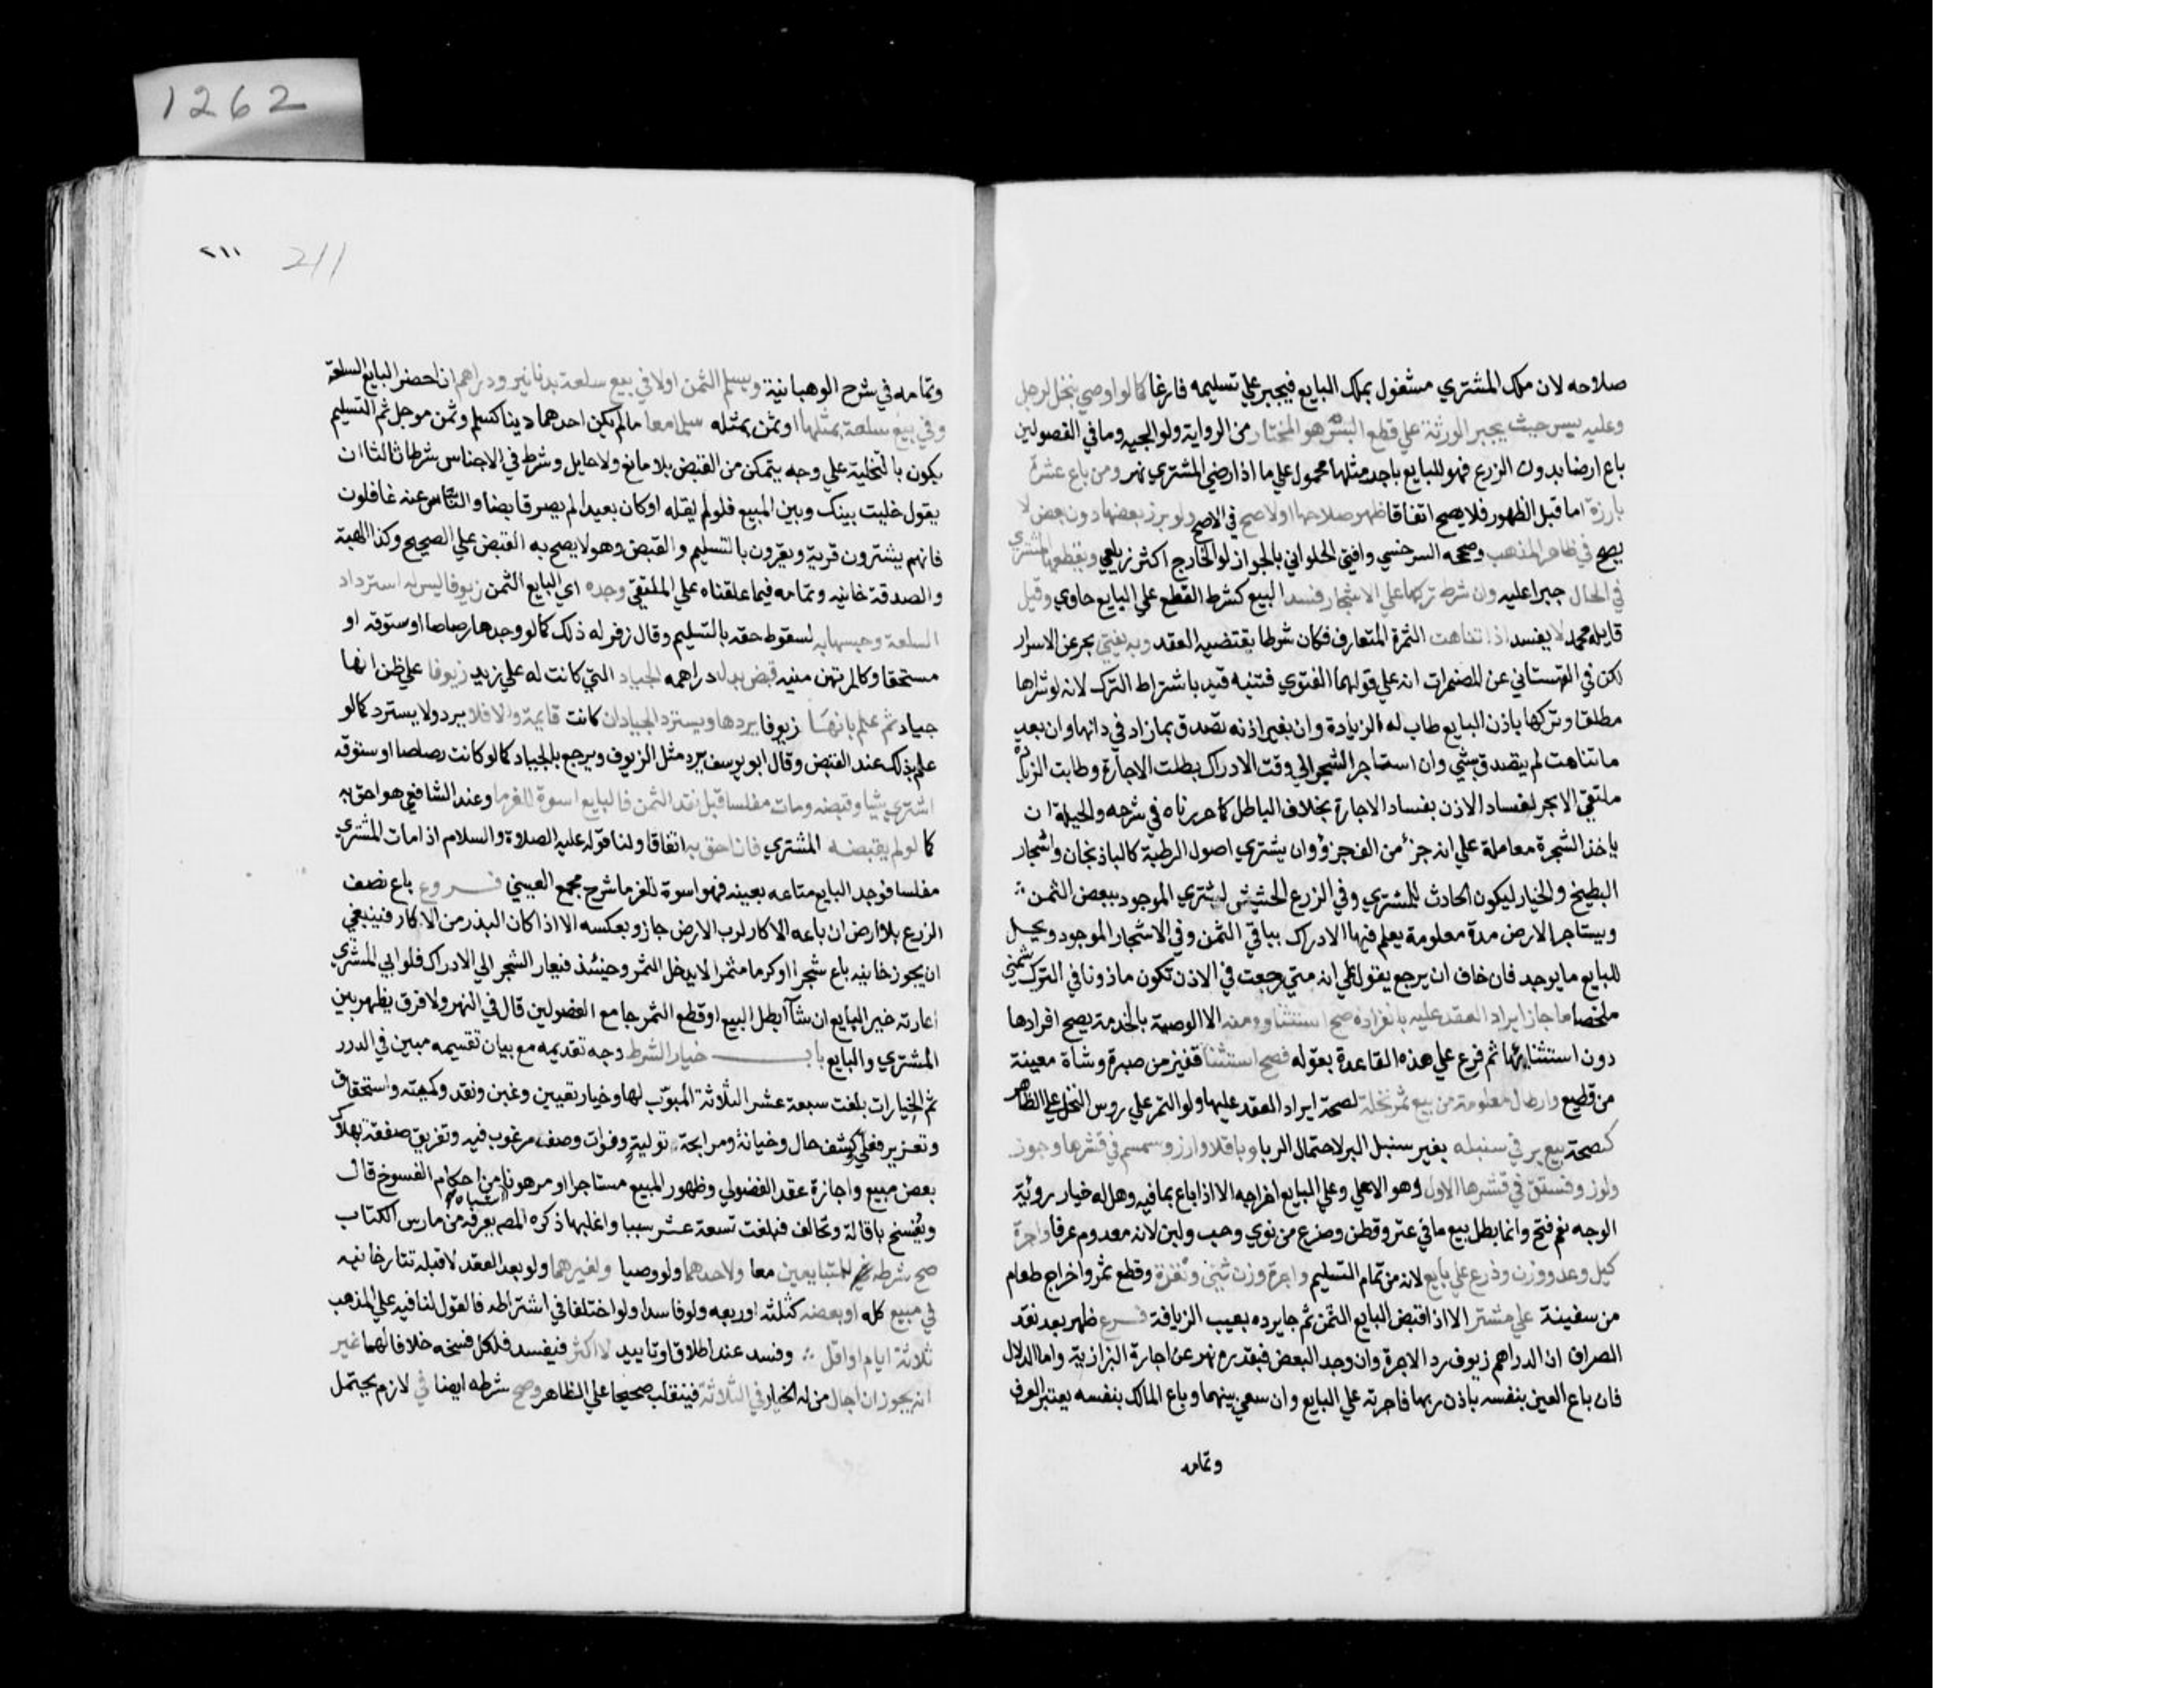 1262
صلاحه لان ملك المشتري مشغول بملك البايع فيجبر علي تسليمه فارغا كما لو اوصي بنخل لرجل
وعليه بسر حيث يجبر الورثة علي قطع البسر هو المختار من الرواية ولوالجيه وما في الفصولين
باع ارضا بدون الزرع فهو للبايع باجر مثلها محمول علي ما اذا رضي المشتري نهر ومن باع ثمرة
بارزة اما قبل الظهور فلا يصح اتفاقا ظهر صلاحها اولا صح في الاصح ولو برز بعضها دون بعض لا
يصح في ظاهر المذهب وصححه السرخسي وافتي الحلواني بالجواز لو الخارج اكثر زيلعي ويقطعها المشتري
في الحال جبرا عليه وان شرط تركها علي الاشجار فسد البيع كشرط القطع علي البايع حاوي وقيل
قايله محمد لا يفسد اذا تناهت الثمرة المتعارف فكان شرطا يقتضيه العقد وبه يفتي بحر عن الاسرار
لكن في القهستاني عن المضمرات انه علي قولهما الفتوي فتنبه قيد باشتراط الترك لانه لو شراها
مطلقا وتركها باذن البايع طاب له الزيادة وان بغير اذنه تصدق بما زاد في ذاتها وان بعد
ما تناهت لم يتصدق بشي وان استاجر الشجر الي وقت الادراك بطلت الاجارة وطابت الزيادة
ملتقي الابحر لفساد الاذن بفساد الاجارة بخلاف الباطل كما حررناه في شرحه والحيلة ان
ياخذ الشجرة معاملة علي ان جزء من الف جزؤ وان يشتري اصول الرطبة كالباذنجان واشجار
البطيخ والخيار ليكون الحادث للمشتري وفي الزرع الحشيش يشتري الموجود ببعض الثمن
ويستاجر الارض مدة معلومة يعلم فيها الادراك بباقي الثمن وفي الاشجار الموجود ويحل
للبايع ما يوجد فان خاف ان يرجع يقول علي انه متي رجعت في الاذن تكون ماذونا في الترك شمني
ملخصا ما جاز ايراد العقد عليه بانفراده صح استثناوه منه الا الوصية بالخدمة يصح افرادها
دون استثنائها ثم فرع علي هذه القاعدة بقوله فصح استثنا قفيز من صبرة وشاة معينة
من قطيع وارطال معلومة من بيع ثمر نخلة لصحة ايراد العقد عليها ولو الثمر علي روس النخل علي الظاهر
كصحة بيع بر في سنبله بغير سنبل البر لاحتمال الربا وباقلا وارز وسمسم في قشرها وجوز
ولوز وفستق في قشرها الاول وهو الاعلي وعلي البايع اخراجه الا اذا باع بما فيه وهل له خيار روية
الوجه نعم فتح وانما بطل بيع ما في ثمر وقطن وضرع من نوي وحب ولبن لانه معدوم عرفا واجرة
كيل وعد ووزن وذرع علي بايع لانه من تمام التسليم واجرة وزن ثمن ونقده وقطع ثمر واخراج طعام
من سفينة علي مشتر الا اذا قبض البايع الثمن ثم جا يرده بعيب الزيافة فـرع ظهر بعد نقد
الصراف ان الدراهم زيوف رد الاجرة وان وجد البعض فبقدره نهر عن اجارة البزازية واما الدلال
فان باع العين بنفسه باذن ربها فاجرته علي البايع وان سعي بينهما وباع المالك بنفسه يعتبر العرف
وتمامه
٢١١ 211
وتمامه في شرح الوهبانية ويسلم الثمن اولا في بيع سلعة بدنانير ودراهم ان احضر البايع السلعة
وفي بيع سلعة بمثلها او ثمن بمثله سلما معا ما لم يكن احدهما دينا كسلم وثمن موجل ثم التسليم
يكون بالتخلية علي وجه يتمكن من القبض بلا مانع ولا حايل وشرط في الاجناس شرطا ثالثا ان
يقول خليت بينك وبين المبيع فلو لم يقله او كان بعيدا لم يصر قابضا والناس عنه غافلون
فانهم يشترون قرية ويقرون بالتسليم والقبض وهو لا يصح به القبض علي الصحيح وكذا الهبة
والصدقة خانيه وتمامه فيما علقناه علي الملتقي وجده اي البايع الثمن زيوفا ليس له استرداد
السلعة وحبسها به لسقوط حقه بالتسليم وقال زفر له ذلك كما لو وجدها رصاصا او ستوقه او
مستحقا وكالمرتهن منيه قبض بدل دراهمه الجياد التي كانت له علي زيد زيوفا علي ظن انها
جياد ثم علم بانها زيوفا يردها ويسترد الجياد ان كانت قايمة والا فلا يرد ولا يسترد كما لو
علم بذلك عند القبض وقال ابو يوسف يرد مثل الزيوف ويرجع بالجياد كما لو كانت رصاصا او ستوقه
اشتري شيا وقبضه ومات مفلسا قبل نقد الثمن فالبايع اسوة للغرما وعند الشافعي هو احق به
كما لو لم يقبضه المشتري فانه احق به اتفاقا ولنا قوله عليه الصلاة والسلام اذا مات المشتري
مفلسا فوجد البايع متاعه بعينه فهو اسوة للغرما شرح مجمع العيني فـروع باع نصف
الزرع بلا ارض ان باعه الاكار لرب الارض جاز وبعكسه الا اذا كان البذر من الاكار فينبغي
ان يجوز خانيه باع شجرا او كرما مثمرا لا يدخل الثمر وحينئذ فيعار الشجر الي الادراك فلو ابي المشتري
اعارته خير البايع ان شآ ابطل البيع او قطع الثمر جامع الفصولين قال في النهر ولا فرق يظهر بين
المشتري والبايع باب خيار الشرط وجه تقديمه مع بيان تقسيمه مبين في الدرر
ثم الخيارات بلغت سبعة عشر الثلاثة المبوب لها وخيار تعيين وغبن ونقد وكميته واستحقاق
وتعزير فعلي وكشف حال وخيانة ومرابحة وتولية وفوات وصف مرغوب فيه وتفريق صفقة بهلاك
بعض مبيع واجازة عقد الفضولي وظهور المبيع مستاجرا او مرهونا اشباه من احكام الفسوخ قال
ويفسخ باقالة وتحالف فبلغت تسعة عشر سببا واغلبها ذكره المصـ يعرفه من مارس الكتاب
صح شرطه للمتبايعين معا ولاحدهما ولو وصيا ولغيرهما ولو بعد العقد لا قبله تتارخانيه
في مبيع كله او بعضه كثلثه او ربعه ولو فاسدا ولو اختلفا في اشتراطه فالقول لنافيه علي المذهب
ثلاثة ايام او اقل وفسد عند اطلاق او تابيد لا اكثر فيفسد فلكل فسخه خلافا لهما غير
انه يجوز ان اجاز من له الخيار في الثلاثة فينقلب صحيحا علي الظاهر وصح شرطه ايضا في لازم يحتمل